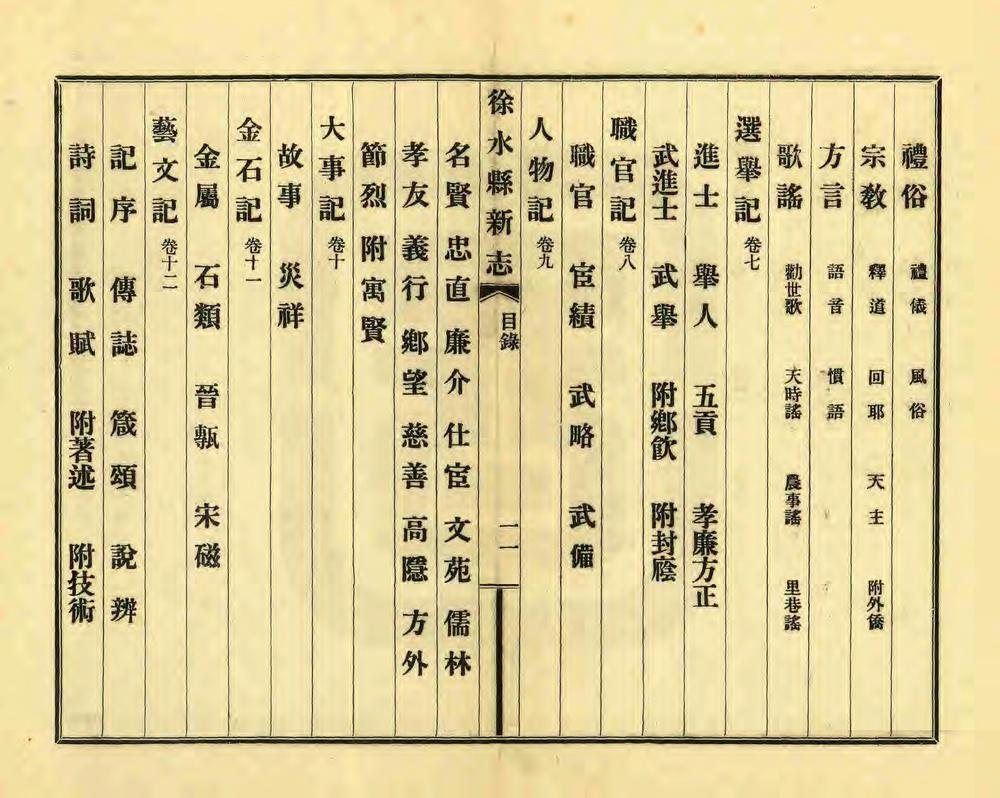 禮俗 禮儀 風俗
宗教 釋道 回耶 天主 附外僑
方言 語音 慣語
歌謠 勸世歌 天時謠 農事謠 里巷謠
選舉記 卷七
進士 舉人 五貢 孝廉方正
武進士 武舉 附鄉飲 附封廕
職官記 卷八
職官 宦績 武略 武備
人物記 卷九
徐水縣新志 目錄 二
名賢 忠直 廉介 仕宦 文苑 儒林
孝友 義行 鄉望 慈善 高隱 方外
節烈 附寓賢
大事記 卷十
故事 災祥
金石記 卷十一
金屬 石類 晉甎 宋磁
藝文記 卷十二
記序 傳誌 箴頌 說辨
詩詞 歌賦 附著述 附技術